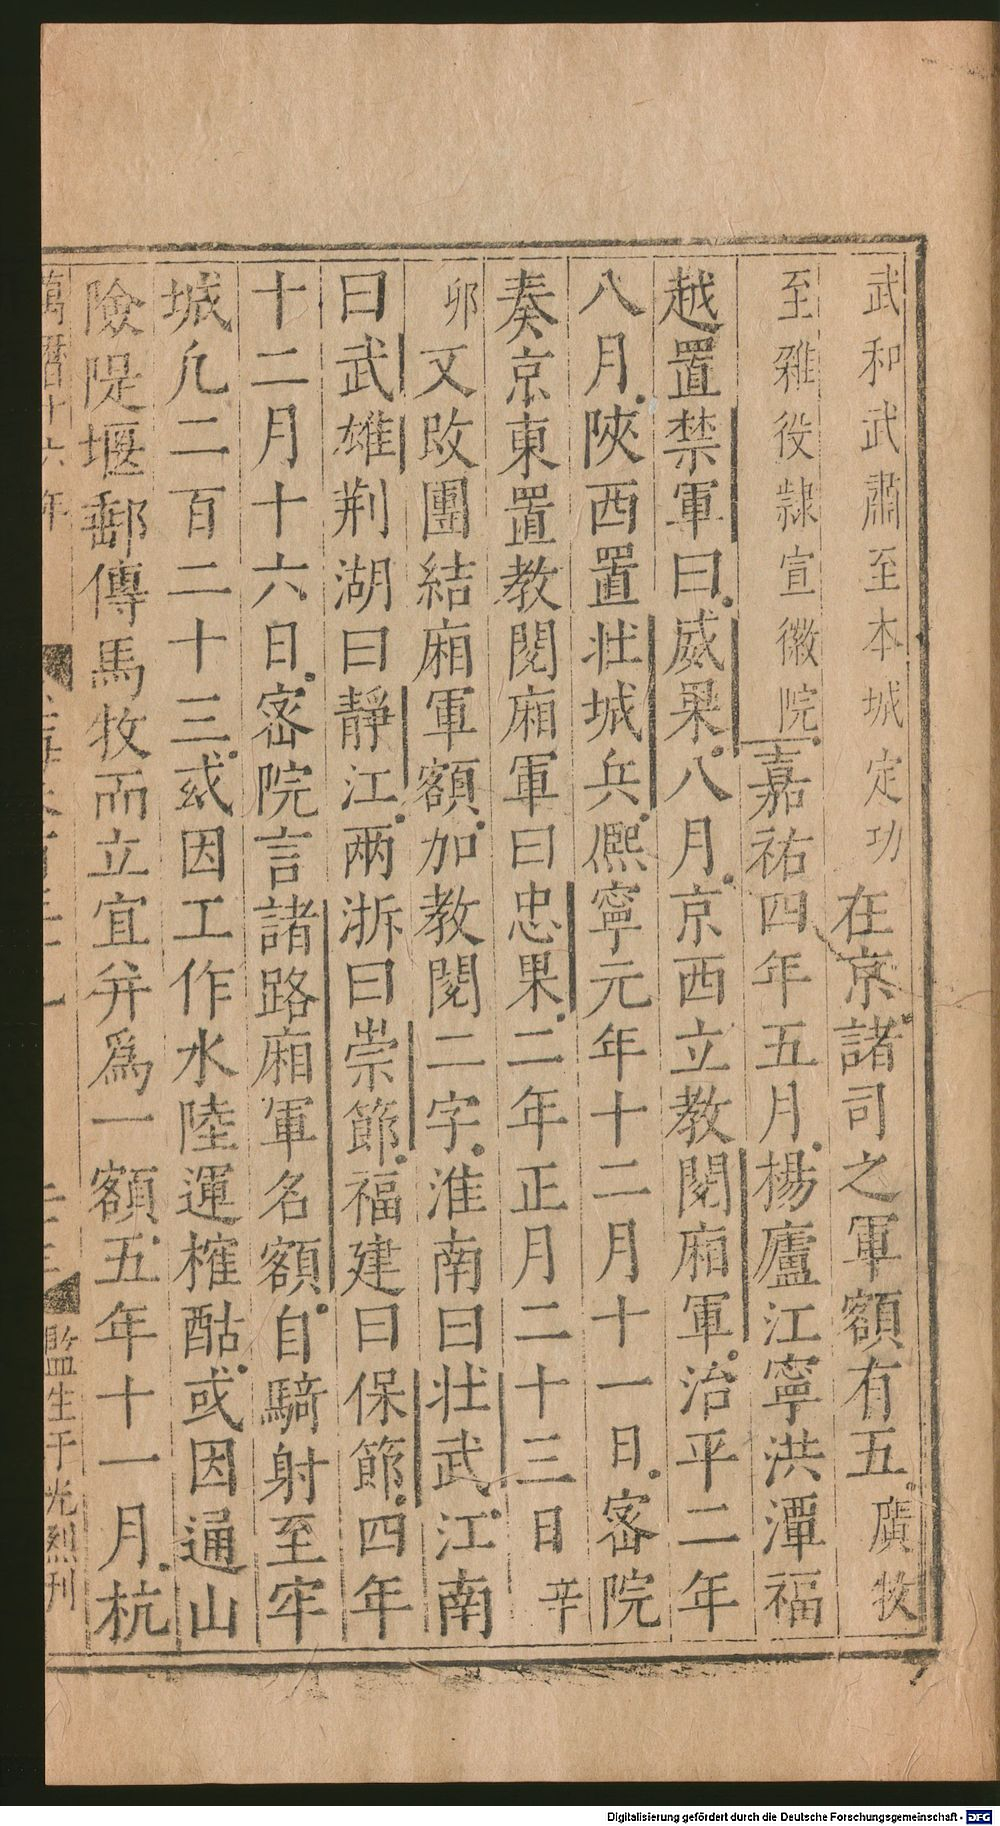 武和武肅至本城定功　在京諸司之軍額有五廣牧
至雜役隷宣徽院嘉祐四年五月楊廬江寧洪潭福
越置禁軍曰威果八月京西立教閱廂軍治平二年
八月陝西置壯城兵熈寧元年十二月十一日宻院
奏京東置教閱廂軍曰忠果二年正月二十三日辛
卯又改團結廂軍額加教閱二字淮南曰壯武江南
曰武雄荆湖曰靜江兩浙曰崇節福建曰保節四年
十二月十六日宻院言諸路廂軍名額自騎射至牢
城凢二百二十三或因工作水陸運榷酤或因通山
險隄堰郵傳馬牧而立宜并爲一額五年十一月杭
萬曆十六年
監生于光烈刊
Digitalisierung gefördert durch die Deutsche Forschungsgemeinschaft - DFG